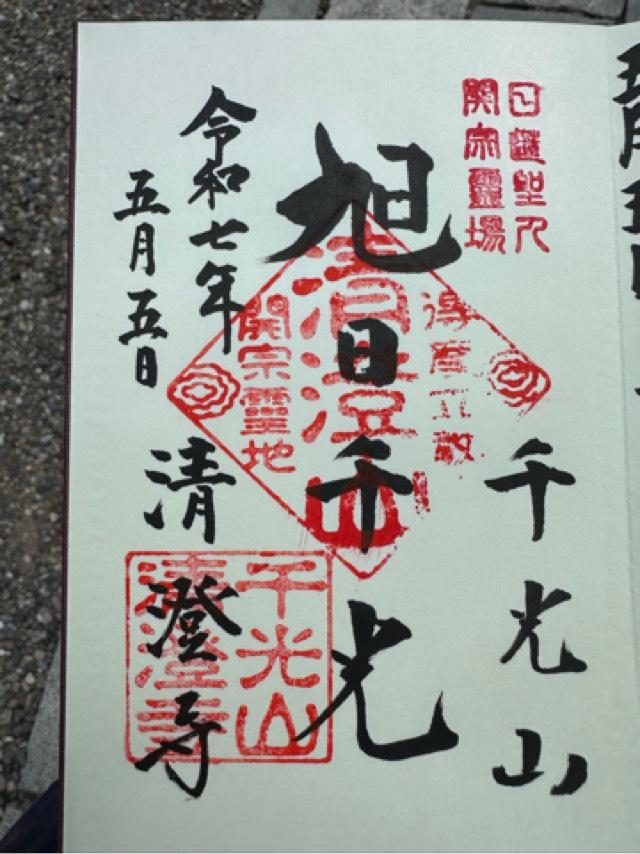 日蓮聖人
開宗靈場
千光山
旭日千光
得度立教
清澄山
開宗靈地
令和七年
五月五日
清澄寺
千光山
清澄寺